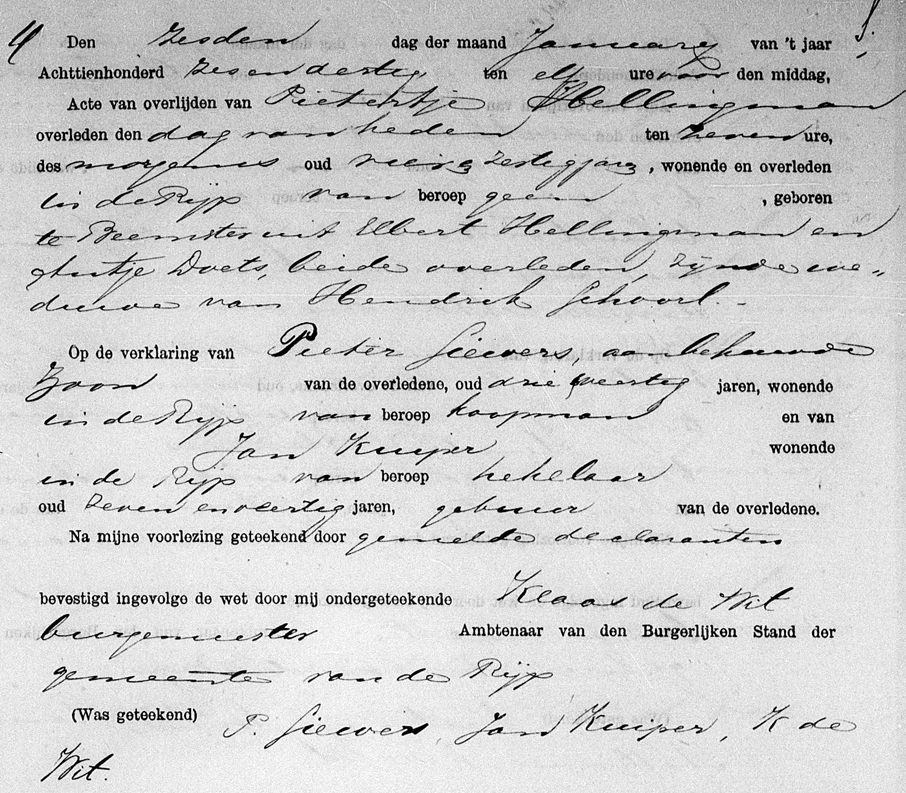 4 Den Zesden dag der maand January van 't jaar
Achttienhonderd zesendestig ten elf ure voor den middag,
Acte van overlijden van Pietertje Hellingman
overleden den dag van heden ten zeven ure,
des morgens oud vier zestig jaar, wonende en overleden
in de Rijp van beroep geen, geboren
te Beemster uit Elbert Hellingman en
Doets, beide overleden, zijnde we„
duwe van Hendrik Schoorl.
Op de verklaring van Pieter Sievers, aan behuwde
Zoon van de overledene, oud drie veertig jaren, wonende
in de Rijp van beroep koopman en van
Jan Kuiper wonende
in de Rijp van beroep hekelaar
oud zeven en veertig jaren, gebuur van de overledene.
Na mijne voorlezing geteekend door gemelde declaranten
bevestigd ingevolge de wet door mij ondergeteekende Klaas de Wit
burgemeester Ambtenaar van den Burgerlijken Stand der
gemeente van de Rijp
(Was geteekend) P. Sievers, Jan Kuiper, K de
Wit.